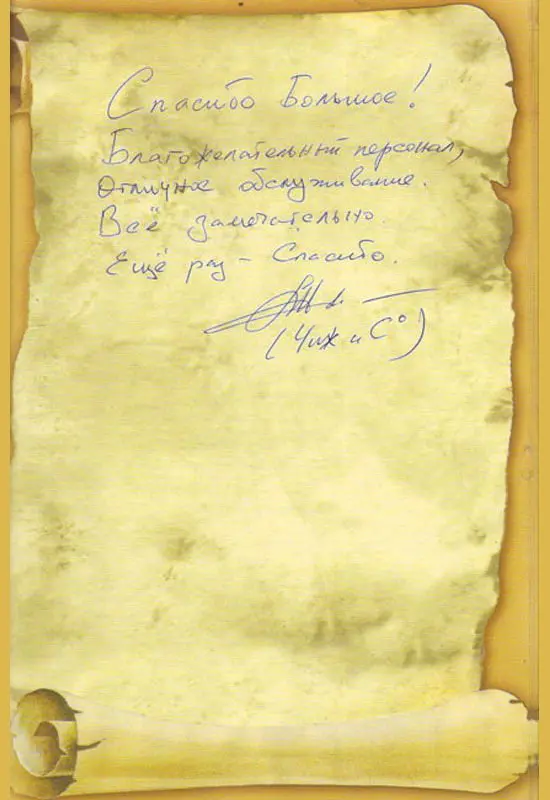 Спасибо Большое!
Благожелательный персонал,
Отличное обслуживание.
Всё замечательно.
Ещё раз – Спасибо.
(Чиж и С°)